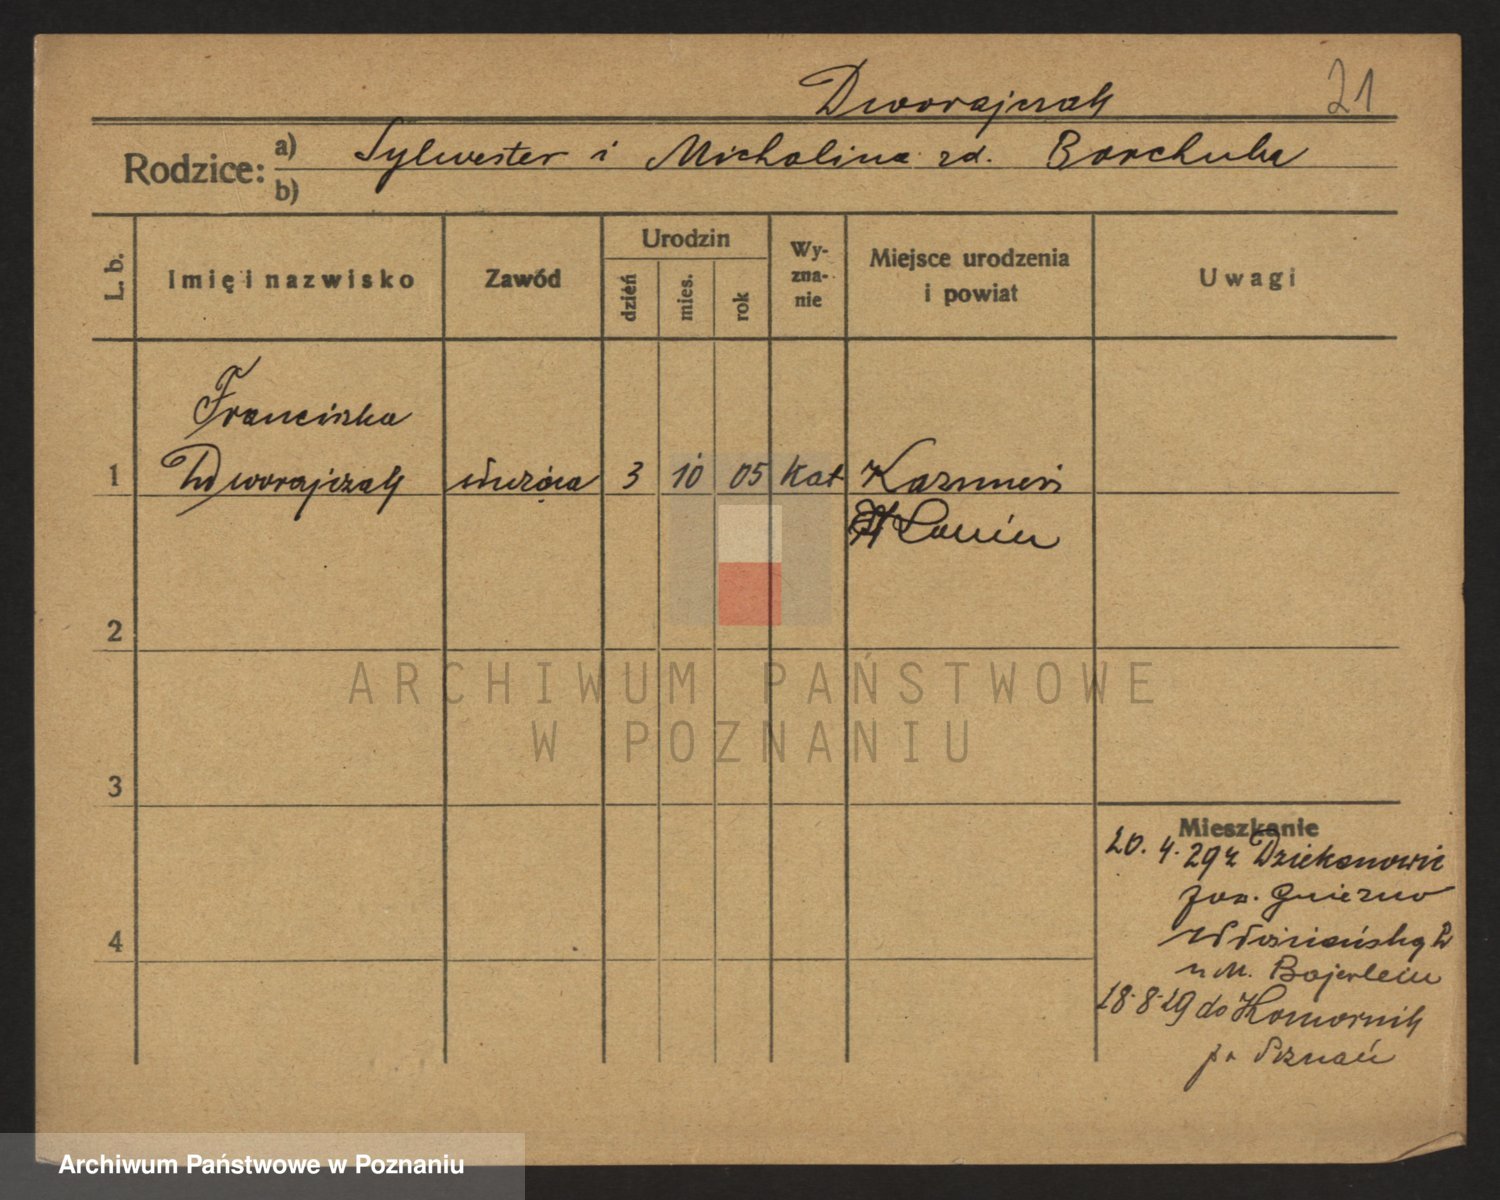 Dworajczak 21
Rodzice: a) Sylwester i Michalina zd. Borchuba
b)
L. b. Imię i nazwisko Zawód Urodzin Wy-zna-nie Miejsce urodzenia i powiat Uwagi
dzień mies. rok
Franciszka
1 Dworajczak służąca 3 10 05 kat Kazmierz
Konin
2
ARCHIWUM PAŃSTWOWE
W POZNANIU
3
Mieszkanie
20. 4. 29 z Dziekanowic
pow. Gniezno
4
u M. Bajerlein
28-8-29 do Komornik
p. Poznań
Archiwum Państwowe w Poznaniu